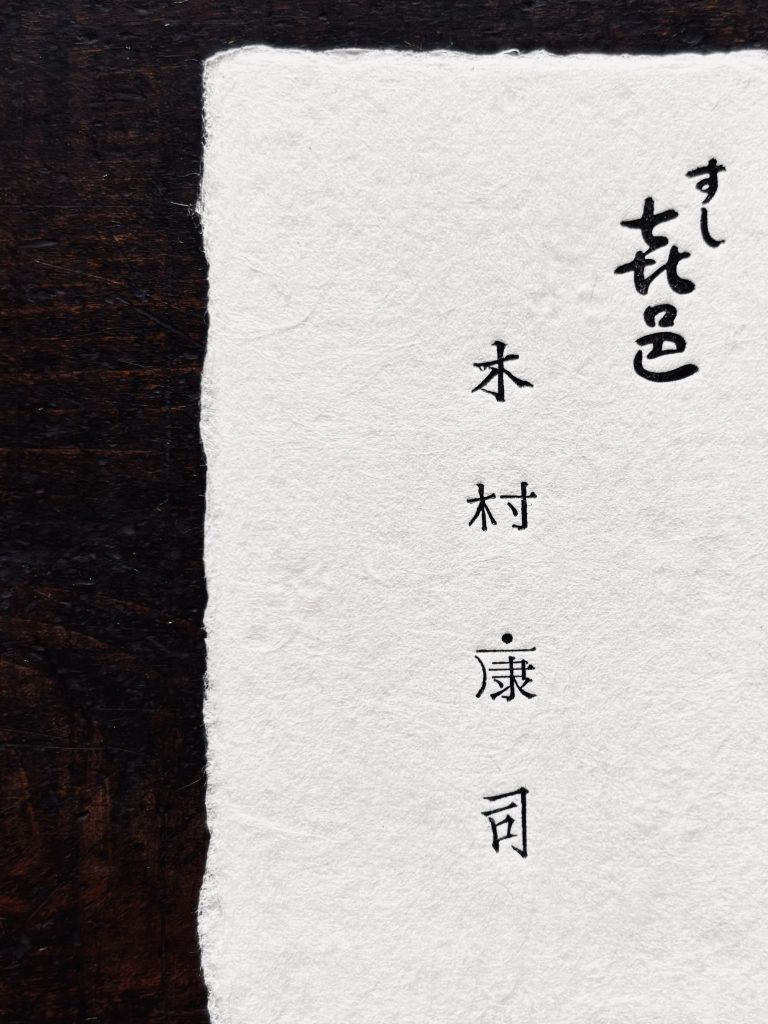 すし
㐂邑
木村康司